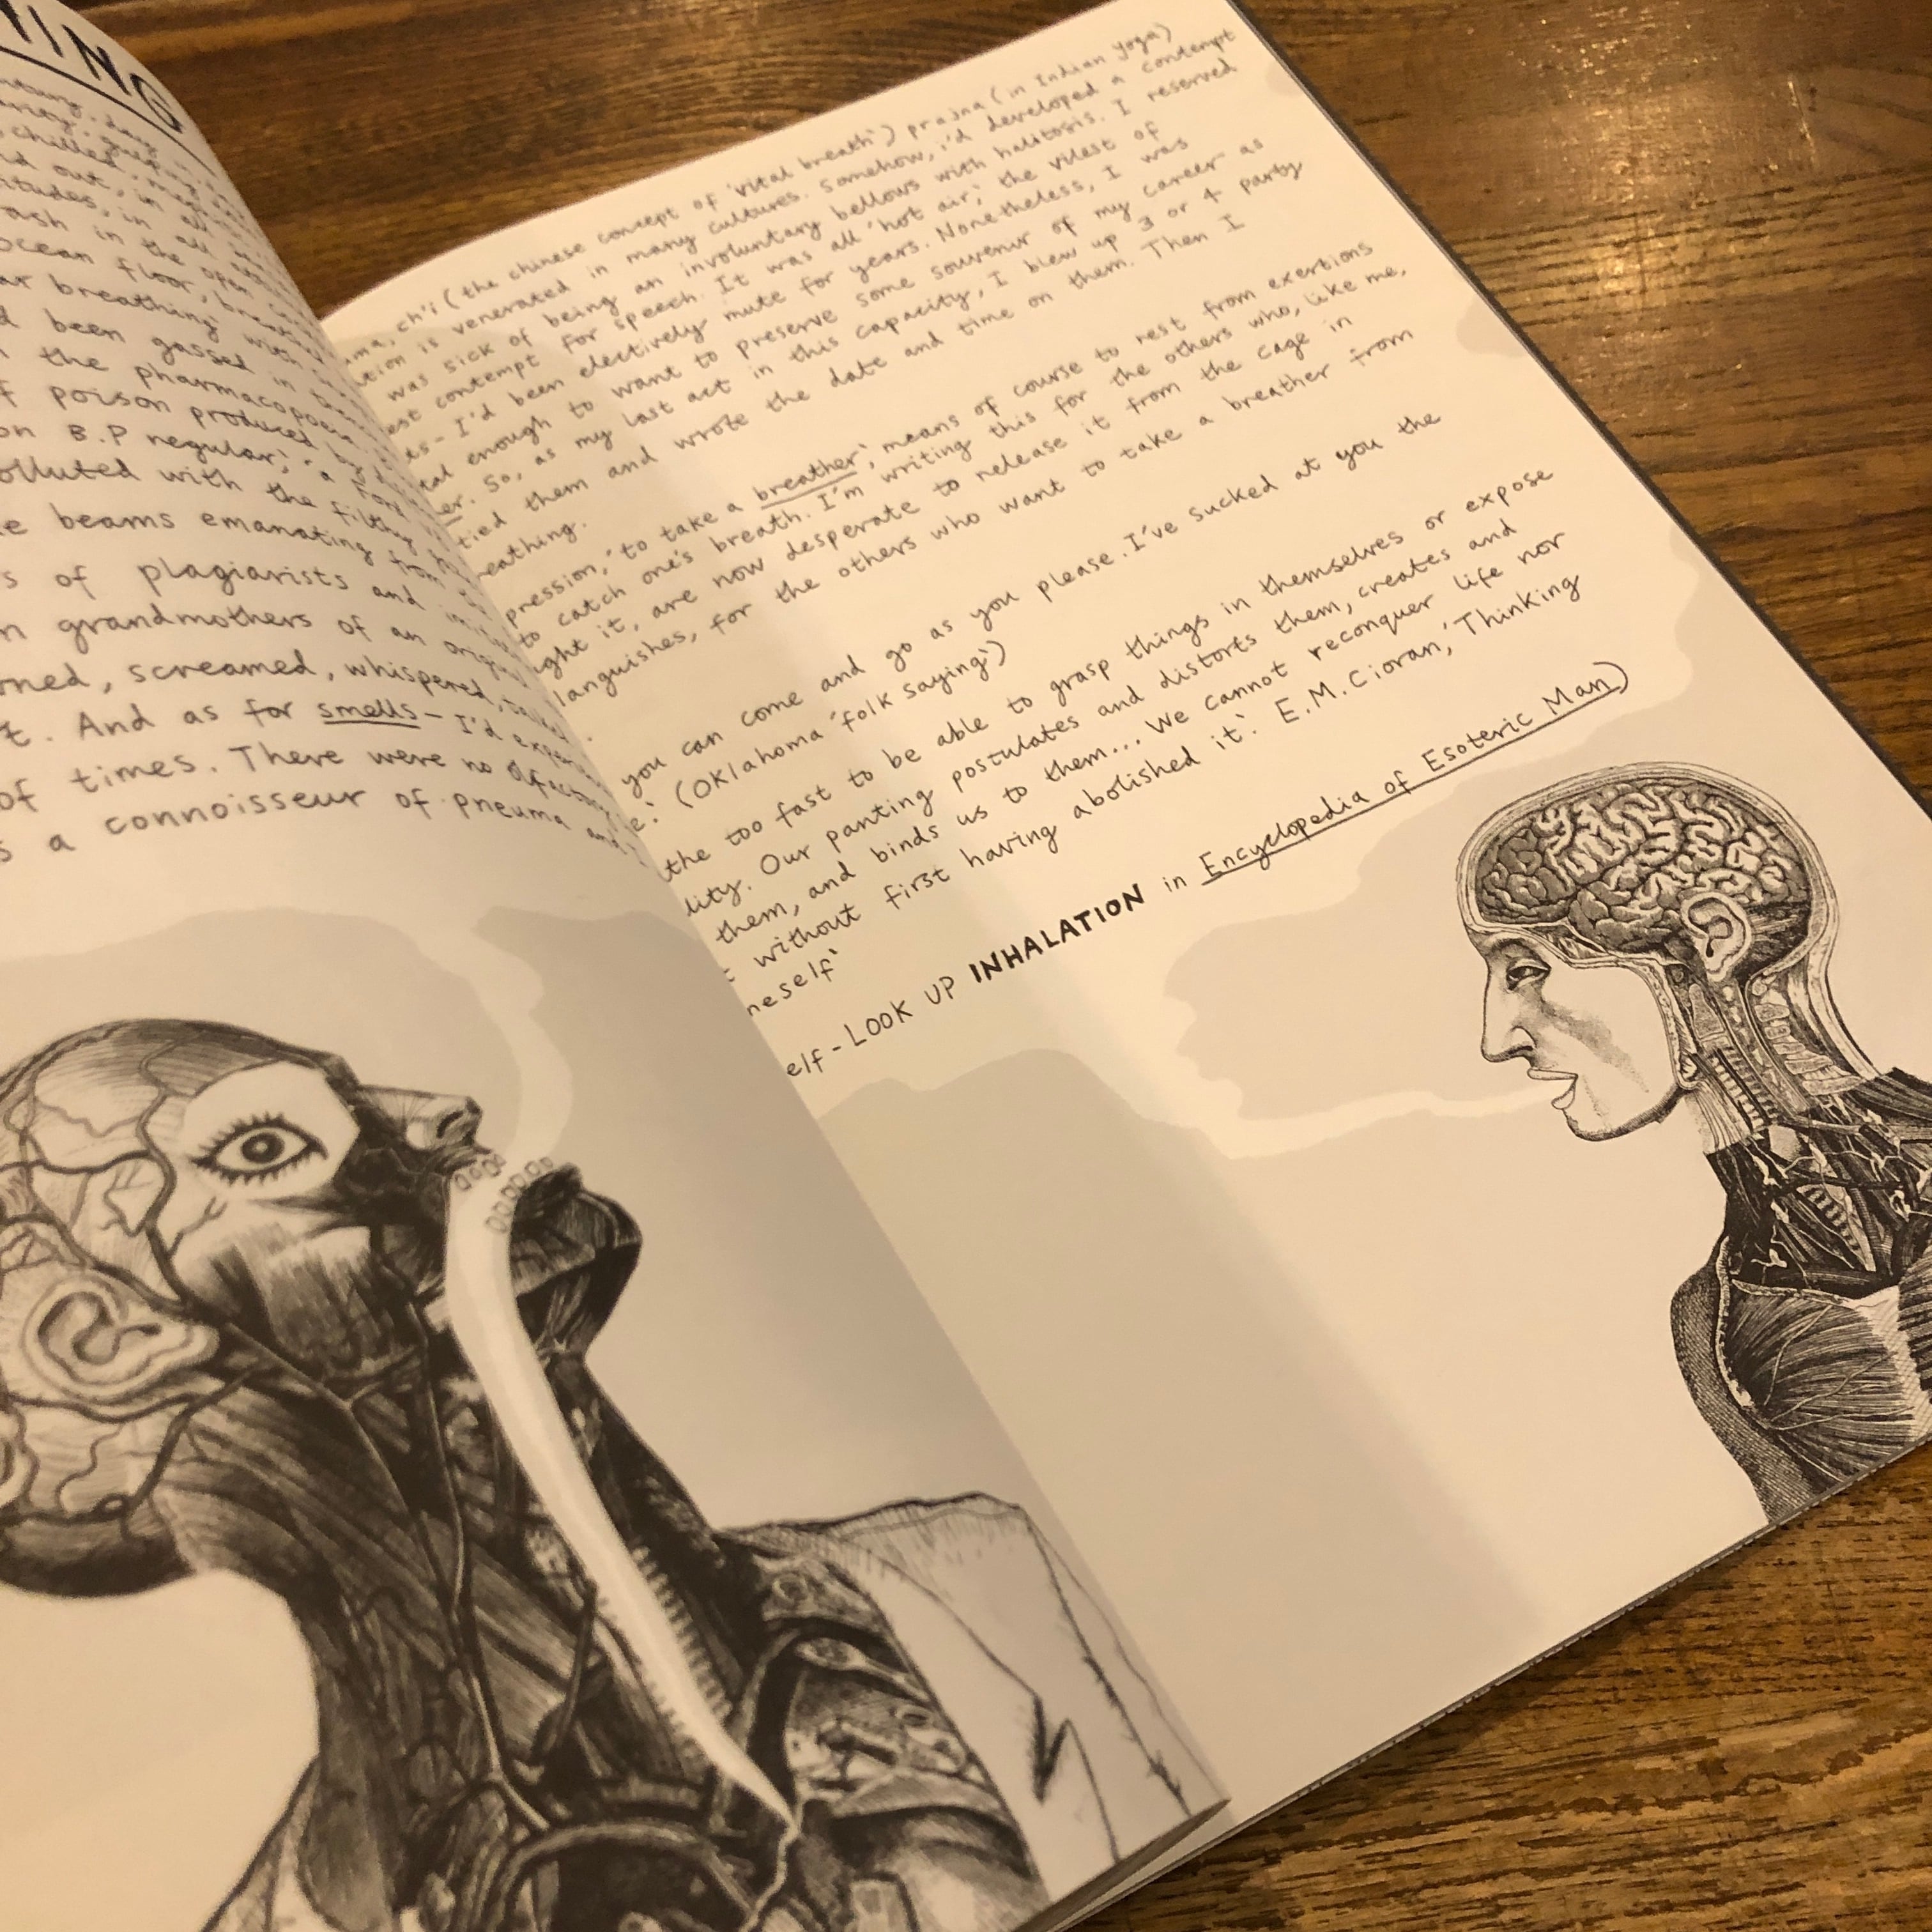 ntury.
chilled,
out, in all
titudes, in all
ash in the open
ocean floor,
ar breathing with
d been gassed in
the pharmacopoeia
f poison produced by
on B.P regular, a
olluted with the filthy
e beams emanating from the
s of plagiarists and
n grandmothers of an
oned, screamed, whispered,
t. And as for smells - I'd
of times. There were no olfactory
s a connoisseur of pneuma and
uma, ch'i (the chinese concept of 'vital breath') prajna (in Indian yoga)
ation is venerated in many cultures. Somehow, i'd developed a contempt
was sick of being an involuntary bellows with halitosis. I reserved
est contempt for speech. It was all 'hot air,' the vilest of
ts - I'd been electively mute for years. Nonetheless, I was
tal enough to want to preserve some souvenir of my career as
er. So, as my last act in this capacity, I blew up 3 or 4 party
tied them and wrote the date and time on them. Then I
reathing.
pression, 'to take a breather', means of course to rest from exertions
to catch one's breath. I'm writing this for the others who, like me,
ght it, are now desperate to release it from the cage in
languishes, for the others who want to take a breather from
.
you can come and go as you please. I've sucked at you the
e.' (Oklahoma 'folk saying')
the too fast to be able to grasp things in themselves or expose
lity. Our panting postulates and distorts them, creates and
them, and binds us to them... We cannot reconquer life nor
t without first having abolished it.' E.M. Cioran, 'Thinking
neself'
elf - LOOK UP INHALATION in Encyclopedia of Esoteric Man)